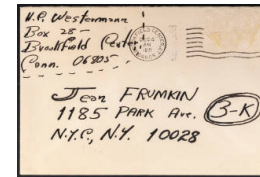 V.P. Westermann
Box 28 —
Brookfield Center,
Conn. 06805
Jean FRUMKIN
1185 PARK Ave. 3-K
N.Y.C., N.Y. 10028